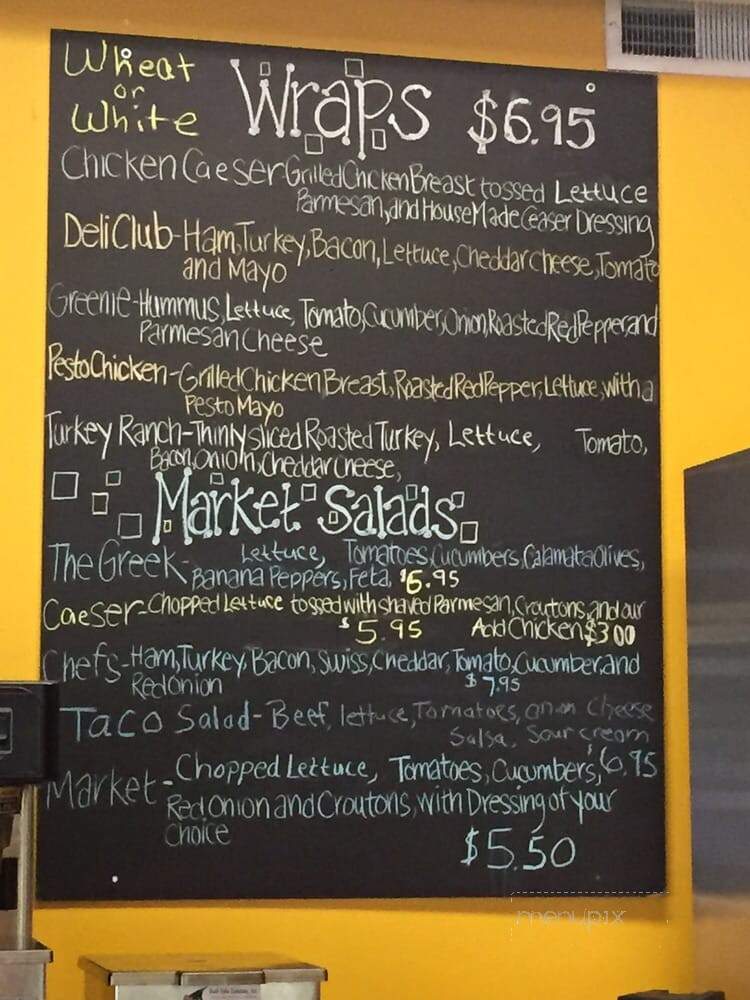 Wheat
or
White
Wraps $6.95
Chicken Caeser Grilled Chicken Breast tossed Lettuce
Parmesan, and House Made Ceaser Dressing
Deli Club - Ham, Turkey, Bacon, Lettuce, Cheddar Cheese, Tomato
and Mayo
Greenie - Hummus, Lettuce, Tomato, Cucumber, Onion, Roasted Red Pepper, and
Parmesan Cheese
Pesto Chicken - Grilled Chicken Breast, Roasted Red Pepper, Lettuce, with a
Pesto Mayo
Turkey Ranch - Thinly sliced Roasted Turkey, Lettuce, Tomato,
Bacon, Onion, Cheddar Cheese,
Market Salads
The Greek - Lettuce, Tomatoes, Cucumbers, Calamata Olives,
Banana Peppers, Feta, $6.95
Caeser - Chopped Lettuce tossed with shaved Parmesan, Croutons, and our
$5.95 Add Chicken $3.00
Chefs - Ham, Turkey, Bacon, Swiss, Cheddar, Tomato, Cucumber, and
Red Onion $7.95
Taco Salad - Beef, lettuce, Tomatoes, onion Cheese
Salsa, Sour cream
$6.95
Market - Chopped Lettuce, Tomatoes, Cucumbers,
Red Onion and Croutons, with Dressing of your
Choice
$5.50
menupix